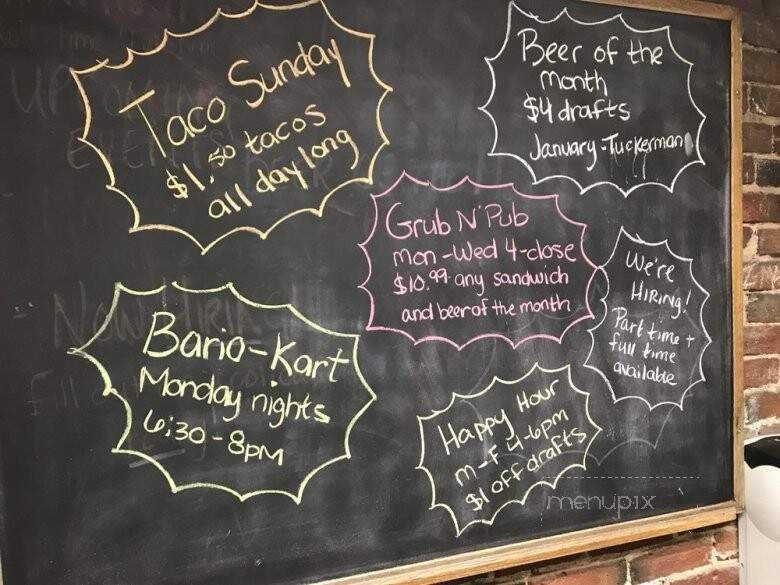 Taco Sunday
$1.50 tacos
all day long
Beer of the
month
$4 drafts
January-Tuckerman
Grub N' Pub
mon-Wed 4-close
$10.99 any sandwich
and beer of the month
We're
HIRING!
Part time +
full time
available
Bario-Kart
Monday nights
6:30-8PM
Happy Hour
m-F 4-6pm
$1 off drafts
UPCOMING
EVENTS
NOW HIRING
menupix